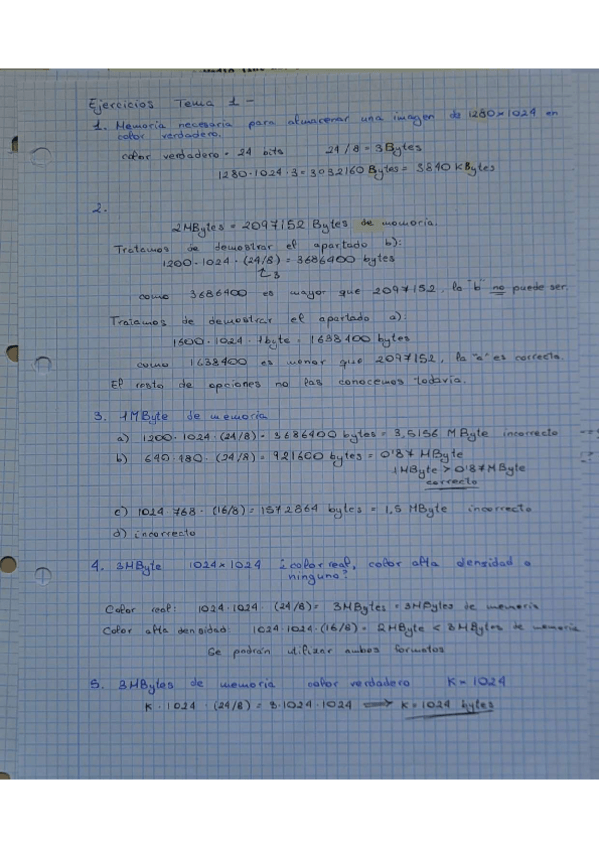 Ejercicios Tema 1 -
1. Memoria necesaria para almacenar una imagen de 1280×1024 en
color verdadero.
color verdadero = 24 bits 24/8 = 3 Bytes
1280·1024·3 = 3932160 Bytes = 3840 KBytes
2.
2 MBytes = 2097152 Bytes de memoria.
Tratamos de demostrar el apartado b):
1200·1024·(24/8) = 3686400 bytes
↳3
como 3686400 es mayor que 2097152, la "b" no puede ser.
Tratamos de demostrar el apartado a):
1600·1024·1byte = 1638400 bytes
como 1638400 es menor que 2097152, la "a" es correcta.
El resto de opciones no las conocemos todavía.
3. 1 MByte de memoria
a) 1200·1024·(24/8) = 3686400 bytes = 3,5156 MByte incorrecto
b) 640·480·(24/8) = 921600 bytes = 0'87 MByte
1 MByte > 0'87 MByte
correcto
c) 1024·768·(16/8) = 1572864 bytes = 1,5 MByte incorrecto
d) incorrecto
4. 3 MByte 1024×1024 ¿color real, color alta densidad o
ninguno?
Color real: 1024·1024·(24/8) = 3 MBytes = 3 MBytes de memoria
Color alta densidad: 1024·1024·(16/8) = 2 MByte < 3 MBytes de memoria
Se podrán utilizar ambos formatos
5. 3 MBytes de memoria color verdadero K × 1024
K·1024·(24/8) = 3·1024·1024 ⟹ K = 1024 bytes